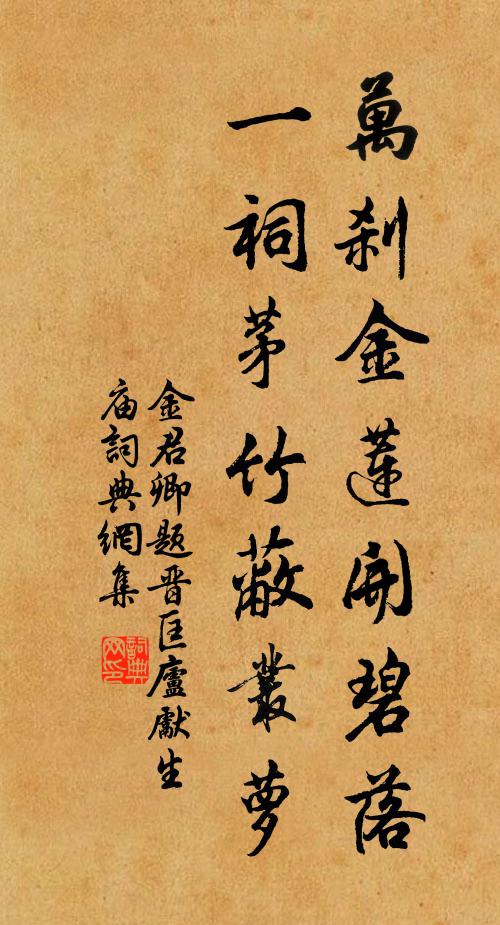 萬刹金蓮開碧落
一祠茅竹蔽叢萝
金君卿題晋匡廬獻生
庙詞典網集
詞典
网印